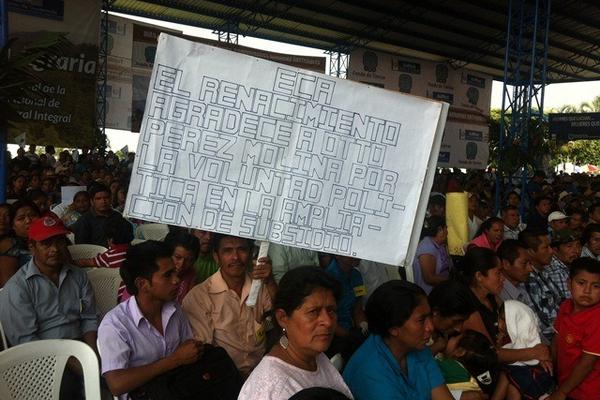 ECA
EL RENACIMIENTO
AGRADECE A OTTO
PEREZ MOLINA POR
LA VOLUNTAD POLI-
TICA EN LA AMPLIA-
CION DE SUBSIDIO.
Fondo de Tierras